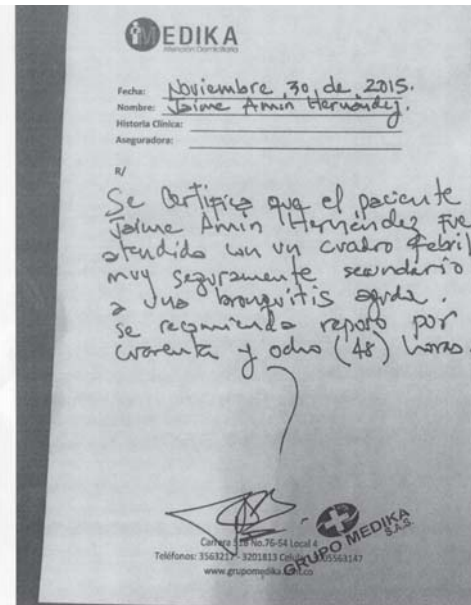 MEDIKA
Atención Domiciliaria
Fecha: Noviembre 30, de 2015.
Nombre: Jaime Amin Hernández.
Historia Clínica:
Aseguradora:
R/
Se Certifica que el paciente
Jaime Amin Hernández fue
atendido con un cuadro febril
muy seguramente secundario
a una bronquitis aguda.
se recomienda reposo por
cuarenta y ocho (48) horas.
GRUPO MEDIKA
S.A.S.
Carrera 51B No.76-54 Local 4
Teléfonos: 3563217 - 3201813
www.grupomedika.com.co